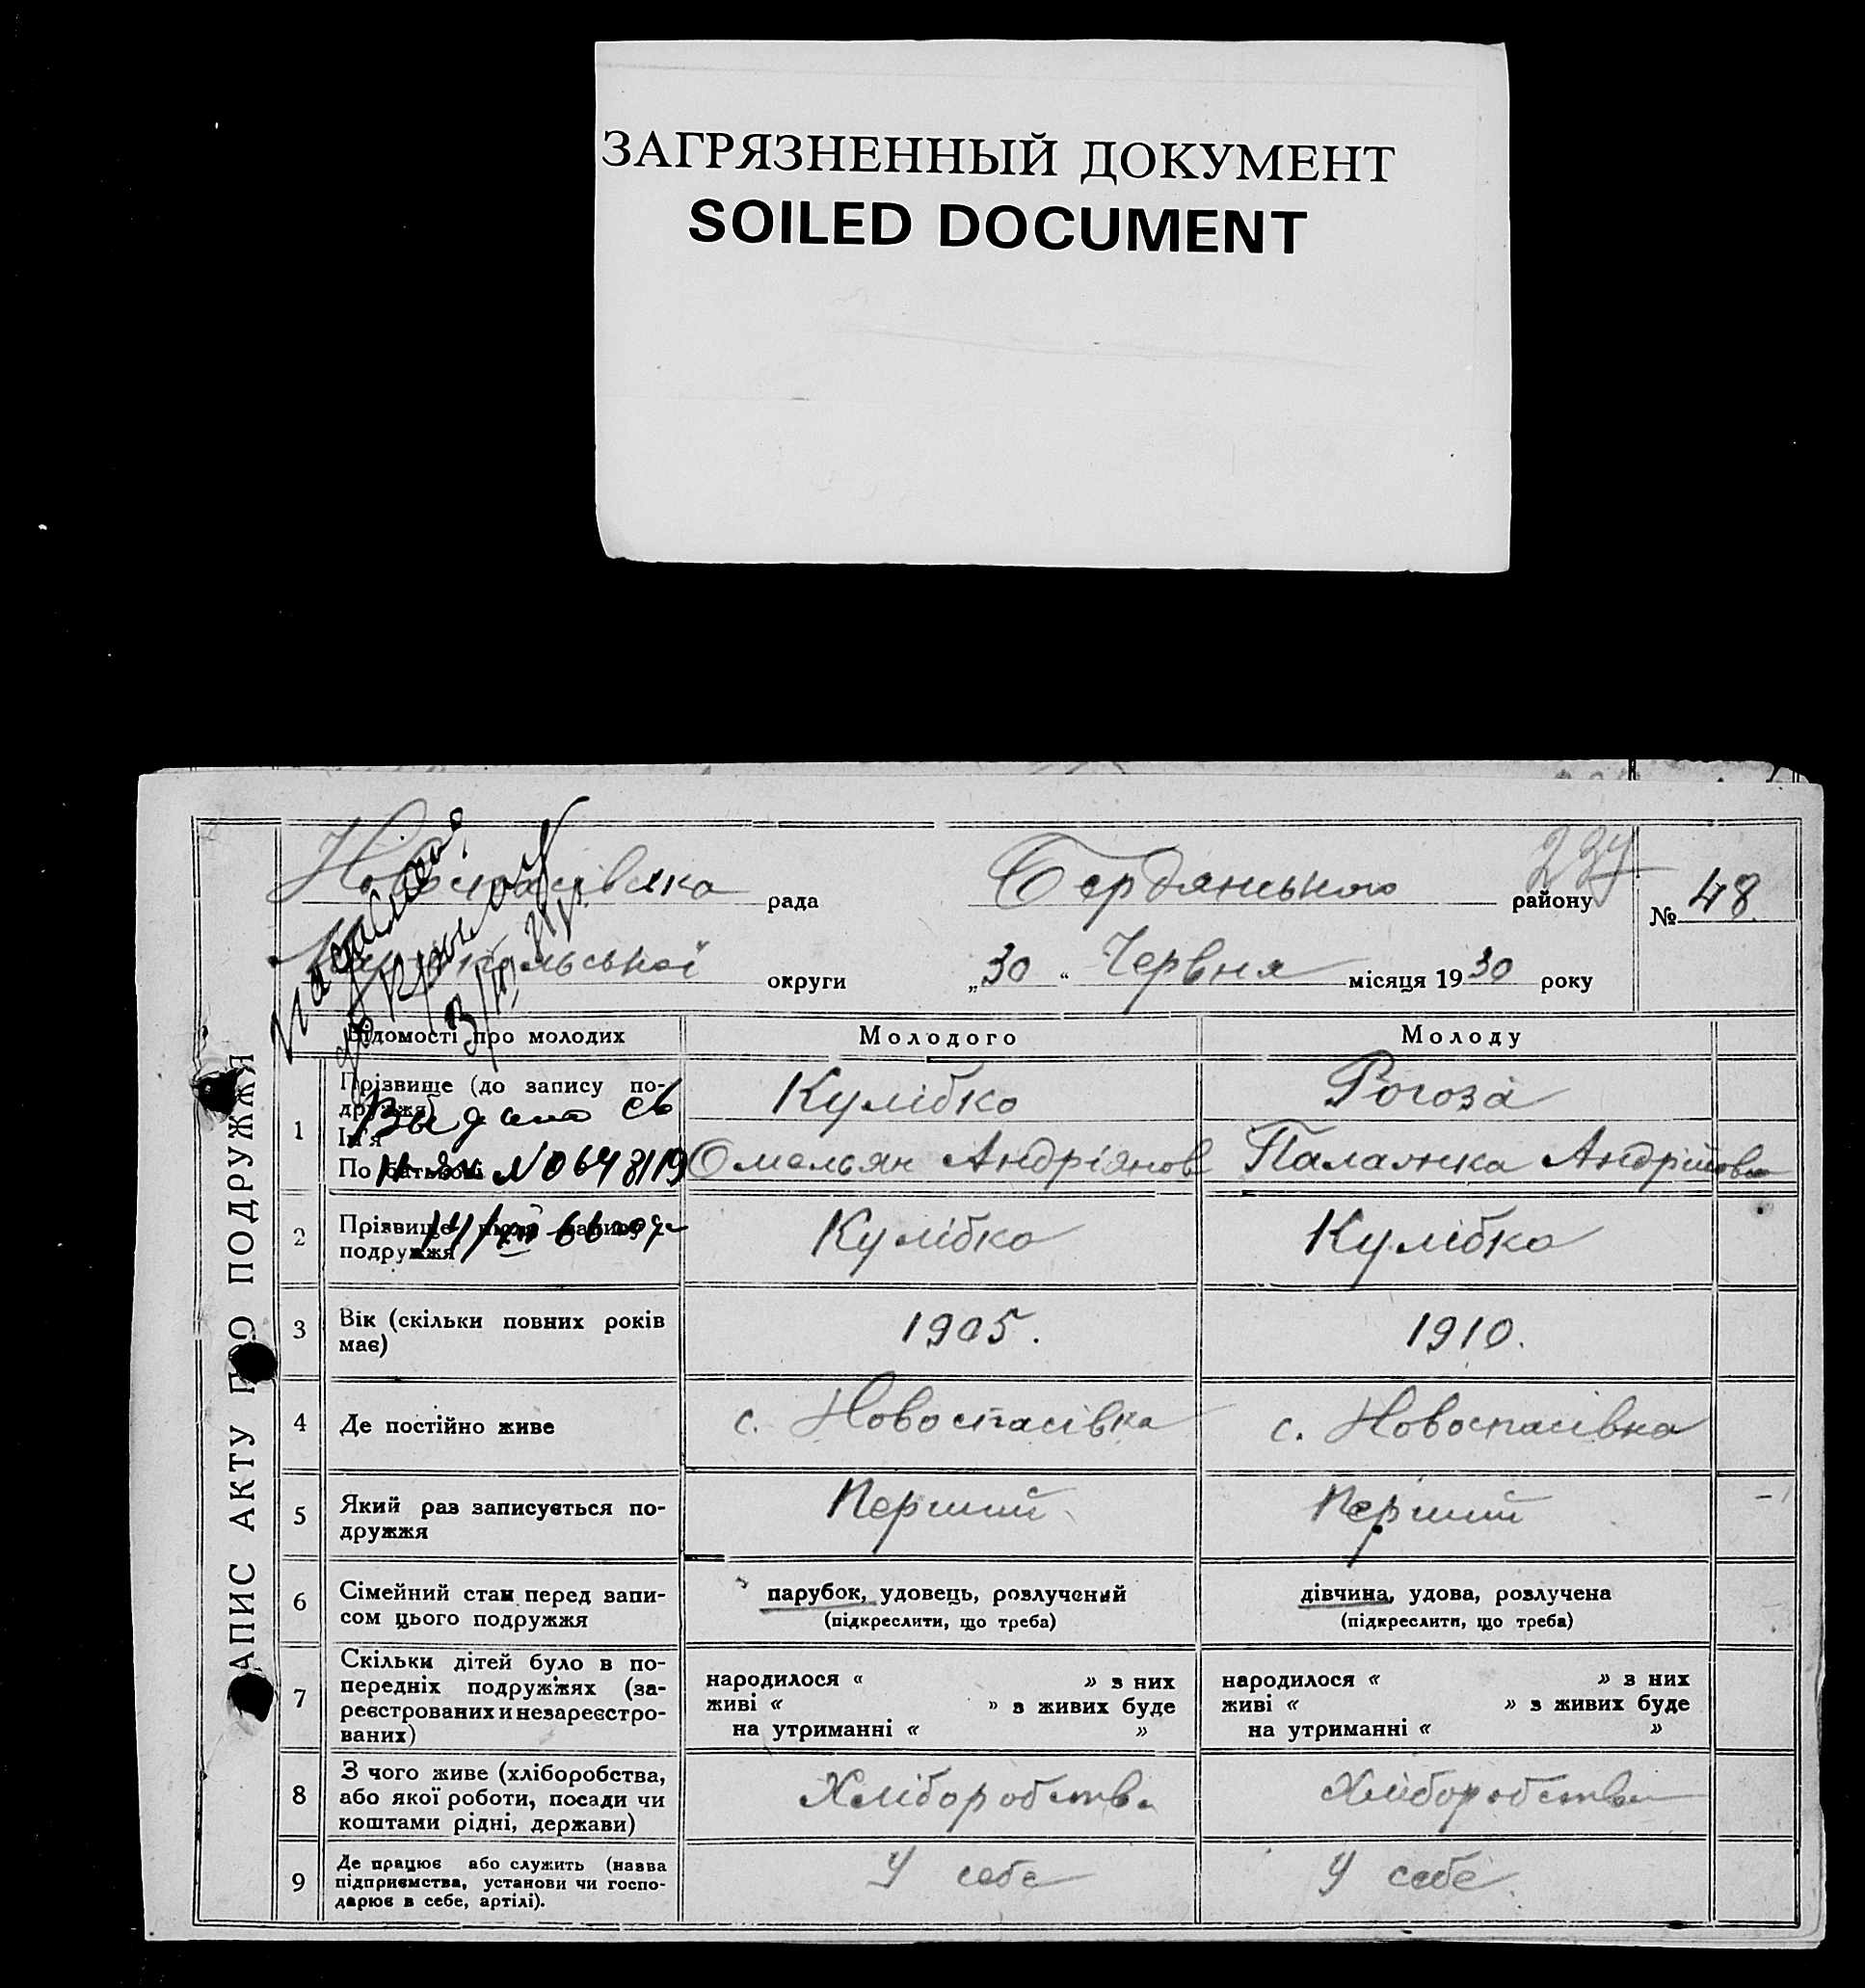 ЗАГРЯЗНЕННЫЙ ДОКУМЕНТ
SOILED DOCUMENT
Новоспасівська рада Бердянського району 234 № 48
округи „30“ Червня місяця 1930 року
ЗАПИС АКТУ ПРО ПОДРУЖЖЯ
Відомості про молодих Молодого Молоду
1 Прізвище (до запису по-
дружжя) Кулібко Рогоза
Ім'я
По батькові Омельян Андріянов Палажка Андріївна
Выдано св
№ 0648119
2 Прізвище після запису
подружжя Кулібко Кулібко
3 Вік (скільки повних років
має) 1905. 1910.
4 Де постійно живе с. Новоспасівка с. Новоспасівка
5 Який раз записується по-
дружжя Перший Перший
6 Сімейний стан перед запи-
сом цього подружжя
парубок, удовець, розлучений
(підкреслити, що треба)
дівчина, удова, розлучена
(підкреслити, що треба)
7 Скільки дітей було в по-
передніх подружжях (за-
реєстрованих и незареєстро-
ваних)
народилося « » з них
живі « » з живих буде
на утриманні « »
народилося « » з них
живі « » з живих буде
на утриманні « »
8 З чого живе (хліборобства,
або якої роботи, посади чи
коштами рідні, держави)
Хліборобства Хліборобства
9 Де працює або служить (назва
підприємства, установи чи госпо-
дарює в себе, артілі).
У себе У себе.